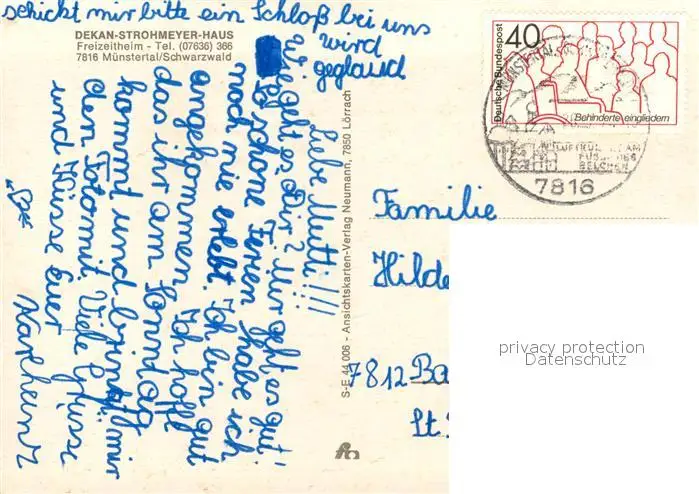 schickt mir bitte ein Schloß bei uns
wird
geglaud
DEKAN-STROHMEYER-HAUS
Freizeitheim - Tel. (07636) 366
7816 Münstertal/Schwarzwald
Liebe Mutti!!!
Wie geht es Dir? Mir geht es gut!
So schöne Ferien habe ich
noch nie erlebt. Ich bin gut
angekommen. Ich hoff
das ihr am Sonntag
kommt und bringt mir
den Foto mit. Viele Grüsse
und Küsse Euer
Karlheinz
S-E 44 006 - Ansichtskarten-Verlag Neumann, 7850 Lörrach
Deutsche Bundespost
40
Behinderte eingliedern
LUFTKURORT AM
FUSSE DES
BELCHEN
7816
Familie
Hilde
7812 Ba
St.
privacy protection
Datenschutz